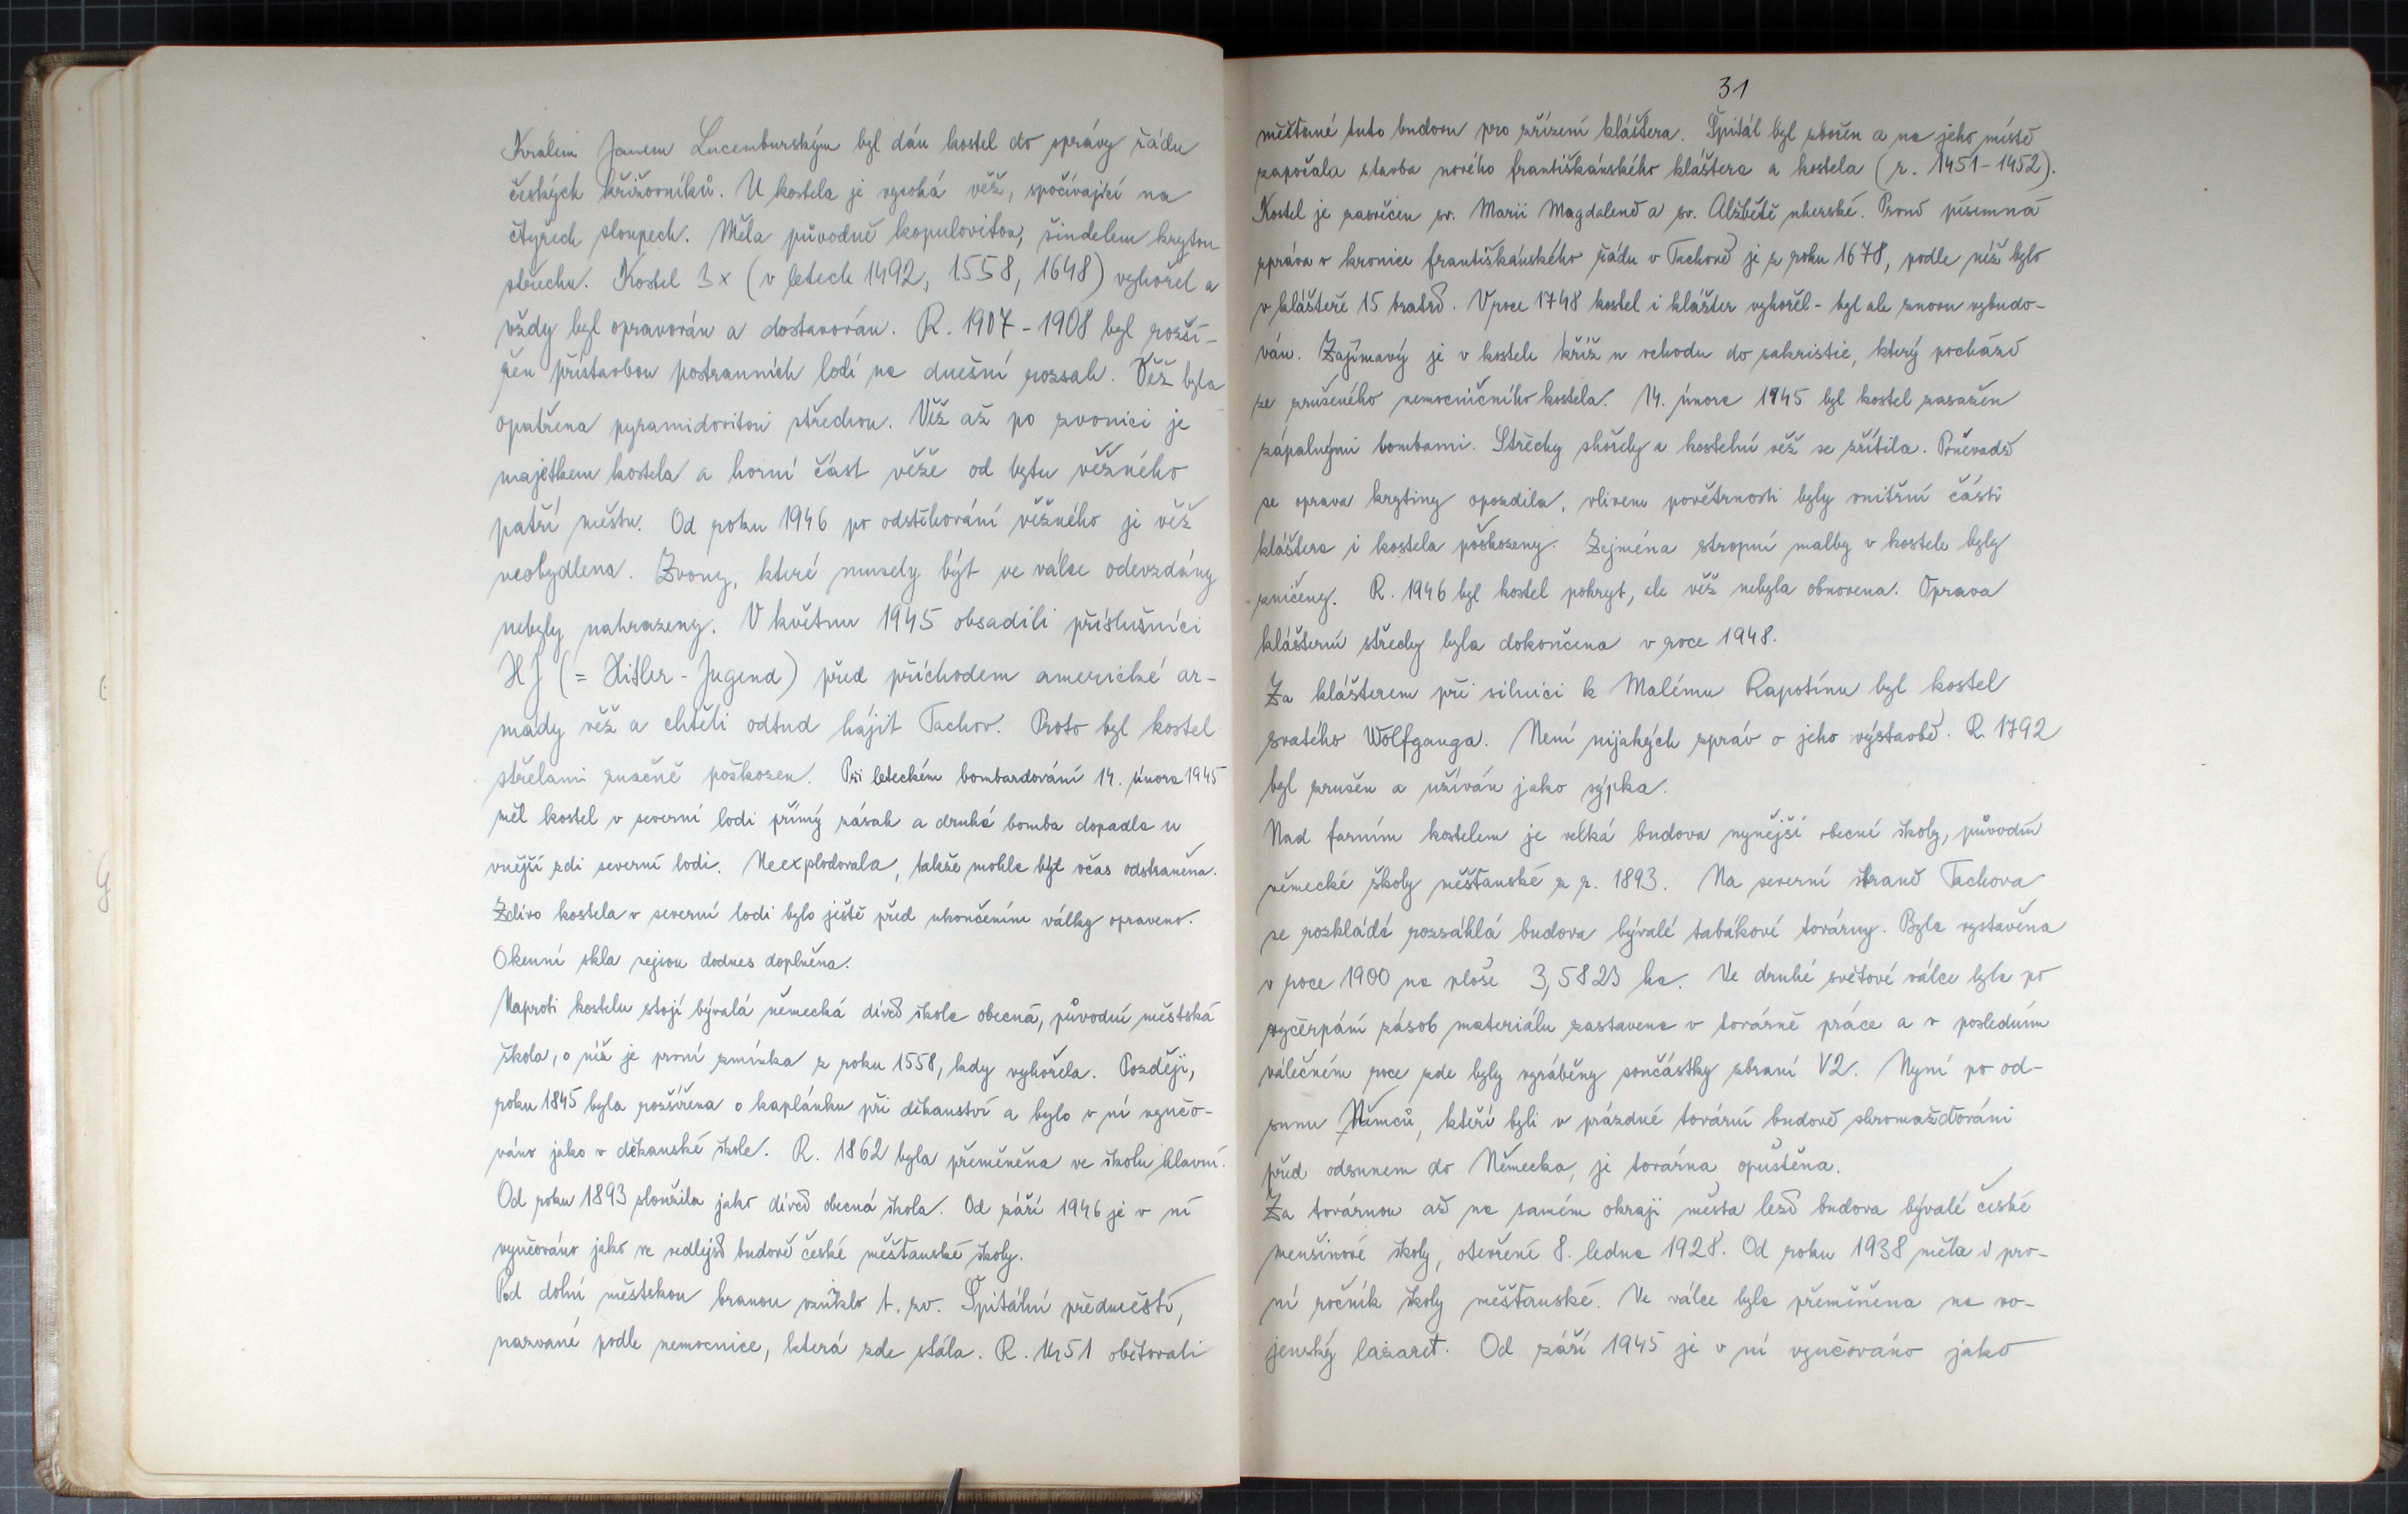 Králem Janem Lucemburským byl dán kostel do správy řádu
českých křižovníků. U kostela je vysoká věž, spočívající na
čtyřech sloupech. Měla původně kopulovitou, šindelem krytou
střechu. Kostel 3x (v letech 1492, 1558, 1648) vyhořel a
vždy byl opravován a dostavován. R. 1907-1908 byl rozší-
řen přístavbou postranních lodí na dnešní rozsah. Věž byla
opatřena pyramidovitou střechou. Věž až po zvonici je
majetkem kostela a horní část věže od bytu věžného
patří městu. Od roku 1946 po odstěhování věžného je věž
neobydlena. Zvony, které musely být ve válce odevzdány
nebyly nahrazeny. V květnu 1945 obsadili příslušníci
HJ (= Hitler-Jugend) před příchodem americké ar-
mády věž a chtěli odtud hájit Tachov. Proto byl kostel
střelami značně poškozen. Při leteckém bombardování 14. února 1945
měl kostel v severní lodi přímý zásah a druhá bomba dopadla u
vnější zdi severní lodi. Neexplodovala, takže mohla být včas odstraněna.
Zdivo kostela v severní lodi bylo ještě před ukončením války opraveno.
Okenní skla nejsou dodnes doplněna.
Naproti kostelu stojí bývalá německá dívčí škola obecná, původní městská
škola, o níž je první zmínka z roku 1558, kdy vyhořela. Později,
roku 1845 byla rozšířena o kaplánku při děkanství a bylo v ní vyučo-
váno jako v děkanské škole. R. 1862 byla přeměněna ve školu hlavní.
Od roku 1893 sloužila jako dívčí obecná škola. Od září 1946 je v ní
vyučováno jako ve vedlejší budově české měšťanské školy.
Pod dolní městskou branou vzniklo t. zv. Špitální předměstí,
nazvané podle nemocnice, která zde stála. R. 1451 obětovali
31
měšťané tuto budovu pro zřízení kláštera. Špitál byl zbořen a na jeho místě
započala stavba nového františkánského kláštera a kostela (r. 1451-1452).
Kostel je zasvěcen sv. Marii Magdaleně a sv. Alžbětě uherské. První písemná
zpráva v kronice františkánského řádu v Tachově je z roku 1678, podle níž bylo
v klášteře 15 bratří. V roce 1748 kostel i klášter vyhořel - byl ale znovu vybudo-
ván. Zajímavý je v kostele kříž u vchodu do sakristie, který pochází
ze zrušeného nemocničního kostela. 14. února 1945 byl kostel zasažen
zápalnými bombami. Střechy shořely a kostelní věž se zřítila. Poněvadž
se oprava krytiny opozdila, vlivem povětrnosti byly vnitřní části
kláštera i kostela poškozeny. Zejména stropní malby v kostele byly
zničeny. R. 1946 byl kostel pokryt, ale věž nebyla obnovena. Oprava
klášterní střechy byla dokončena v roce 1948.
Za klášterem při silnici k Malému Rapotínu byl kostel
svatého Wolfganga. Není nijakých zpráv o jeho výstavbě. R. 1792
byl zrušen a užíván jako sýpka.
Nad farním kostelem je velká budova nynější obecné školy, původní
německé školy měšťanské z r. 1893. Na severní straně Tachova
se rozkládá rozsáhlá budova bývalé tabákové továrny. Byla vystavěna
v roce 1900 na ploše 3,5823 ha. Ve druhé světové válce byla po
vyčerpání zásob materiálu zastavena v továrně práce a v posledním
válečném roce zde byly vyráběny součástky zbraní V2. Nyní po od-
sunu Němců, kteří byli v prázdné tovární budově shromažďováni
před odsunem do Německa, je továrna opuštěna.
Za továrnou až na samém okraji města leží budova bývalé české
menšinové školy, otevření 8. ledna 1928. Od roku 1938 měla i prv-
ní ročník školy měšťanské. Ve válce byla přeměněna na vo-
jenský lazaret. Od září 1945 je v ní vyučováno jako